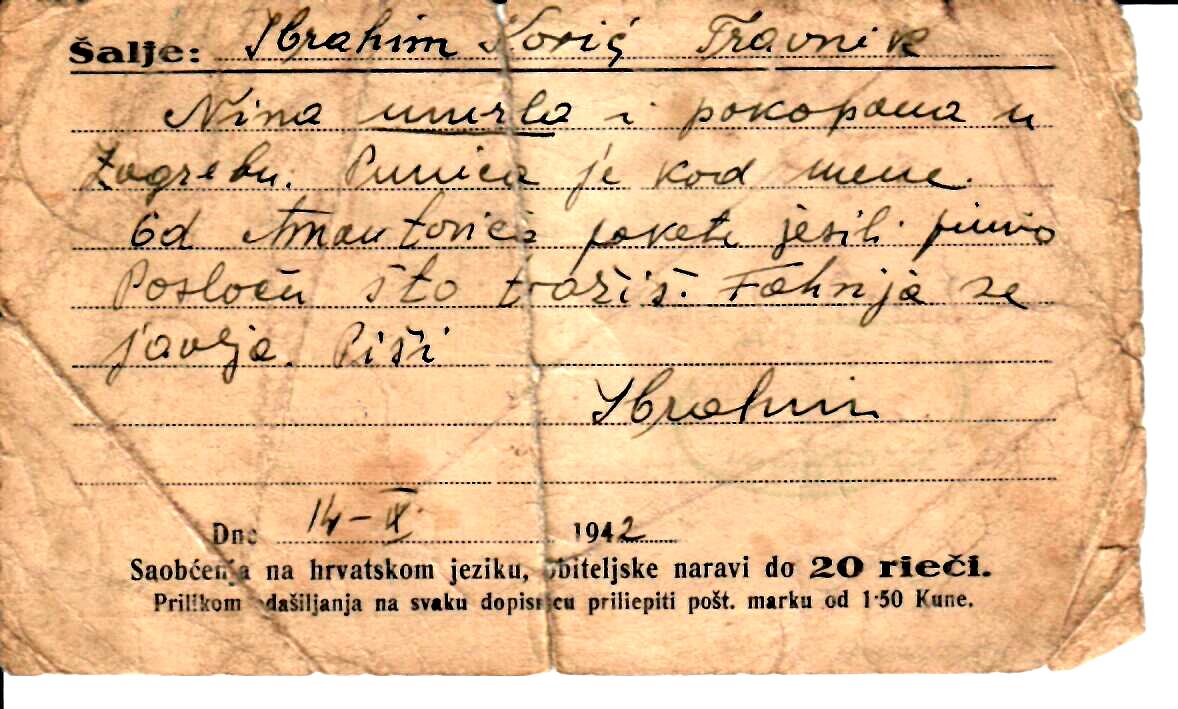 Šalje: Ibrahim Korić Travnik
Nina umrla i pokopana u
Zagrebu. Punica je kod mene.
Od pakete jesili primio
Poslaću što tražiš. Fahrija se
javlja. Piši
Ibrahim
Dne 14-IX. 1942
Saobćenja na hrvatskom jeziku, obiteljske naravi do 20 rieči.
Prilikom odašiljanja na svaku dopisnicu priliepiti pošt. marku od 1·50 Kune.